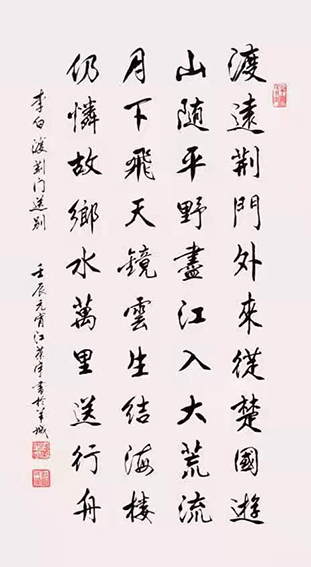 渡遠荆門外來從楚國遊
山随平野盡江入大荒流
月下飛天鏡雲生結海楼
仍憐故鄉水萬里送行舟
李白渡荆门送别 壬辰元宵江書於羊城